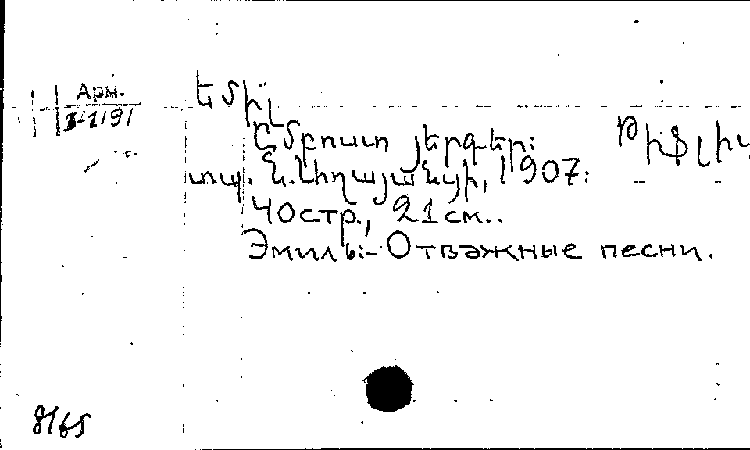 Арм.
Եմիլ
Ըմբոստ յերգեր: Թիֆլիս
տպ. Ն. Աղայանցի, 1907:
40стр., 21см..
Эмиль:-Отважные песни.
8165